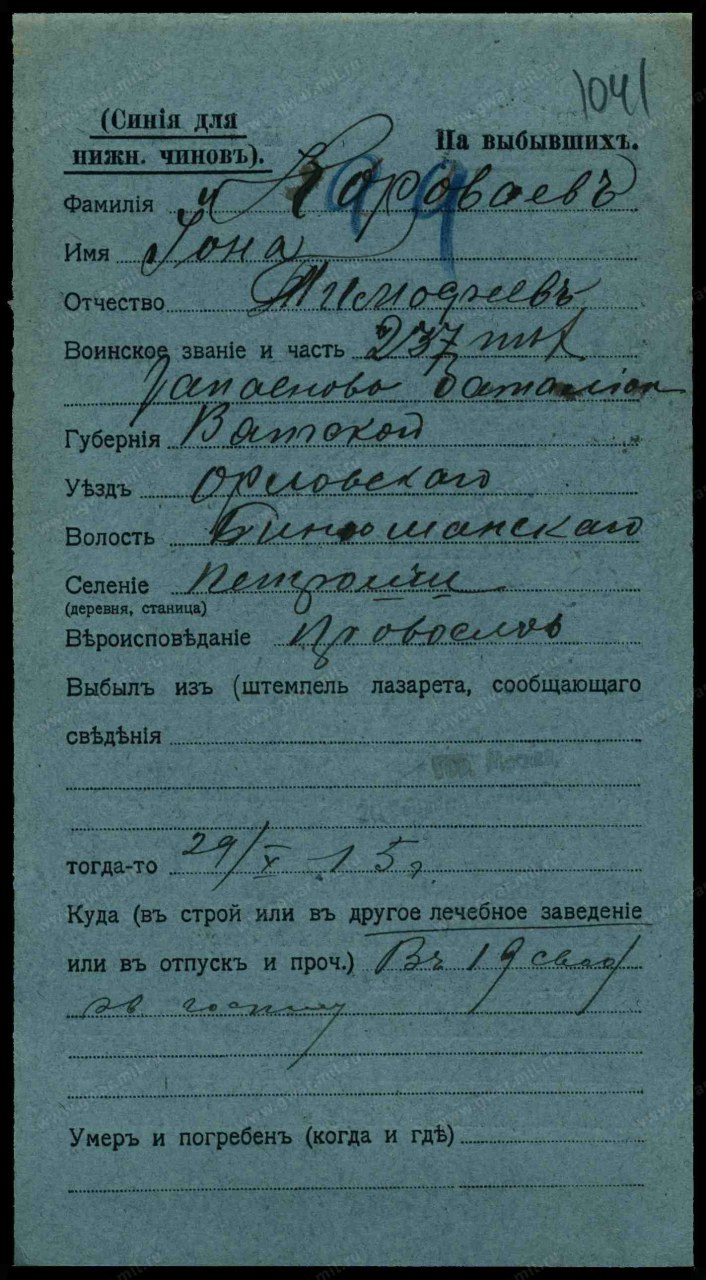 1041
(Синія для
нижн. чиновъ).
На выбывшихъ.
99
Фамилія Короваевъ
Имя Іона
Отчество Тимофеевъ
Воинское званіе и часть 237 пѣх
Запасново баталіон
Губернія Вятской
Уѣздъ Орловскаго
Волость
Селеніе
(деревня, станица)
Вѣроисповѣданіе православ
Выбылъ изъ (штемпель лазарета, сообщающаго
свѣдѣнія
тогда-то 29/X 15 г
Куда (въ строй или въ другое лечебное заведеніе
или въ отпускъ и проч.) Въ 19 свод
эв госпит
Умеръ и погребенъ (когда и гдѣ)